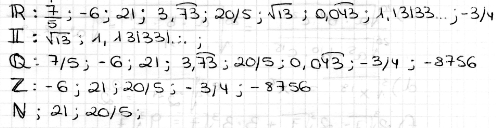 ℝ: 7/5; -6; 21; 3,7̅3̅; 20/5; √13; 0,0̅4̅3̅; 1,13133...; -3/4
𝕀: √13; 1,131331...;
ℚ: 7/5; -6; 21; 3,7̅3̅; 20/5; 0,0̅4̅3̅; -3/4; -8756
ℤ: -6; 21; 20/5; -3/4; -8756
ℕ; 21; 20/5;